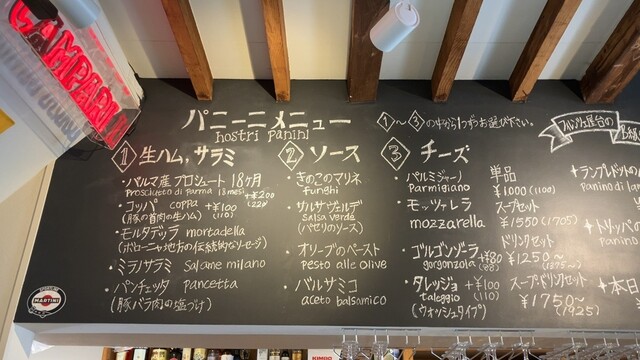 CAMPARI
パニーニメニュー
nostri panini
①〜③の中から1つずつお選び下さい。
1 生ハム,サラミ
・パルマ産プロシュート 18ヶ月
prosciutto di parma 18mesi +¥200
(220)
・コッパ coppa +¥100
(豚の首肉の生ハム) (110)
・モルタデッラ mortadella
(ボローニャ地方の伝統的なソセージ)
・ミラノサラミ salame milano
・パンチェッタ pancetta
(豚バラ肉の塩づけ)
2 ソース
・きのこのマリネ
funghi
・サルサヴェルデ
salsa verde
(パセリのソース)
・オリーブのペースト
pesto alle olive
・バルサミコ
aceto balsamico
3 チーズ
・パルミジャーノ
parmigiano
・モッツァレラ
mozzarella
・ゴルゴンゾーラ +¥80
gorgonzola (88)
・タレッジョ +¥100
taleggio (110)
(ウォッシュタイプ)
単品
¥1000(1100)
スープセット
¥1550(1705)
ドリンクセット
¥1250〜
(1375〜)
スープドリンクセット
¥1750〜
(1925)
屋台の
ランプレドットの
panino di la
トリッパの
panino
本日
MARTINI
KIMIO